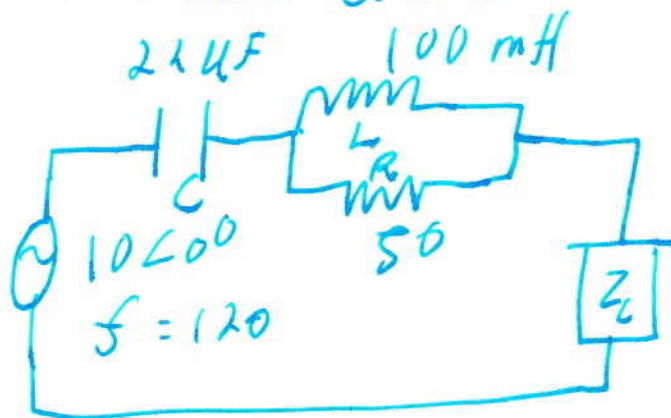 22 µF
100 mH
L
R
C
50
10<0°
f = 120
Z_L